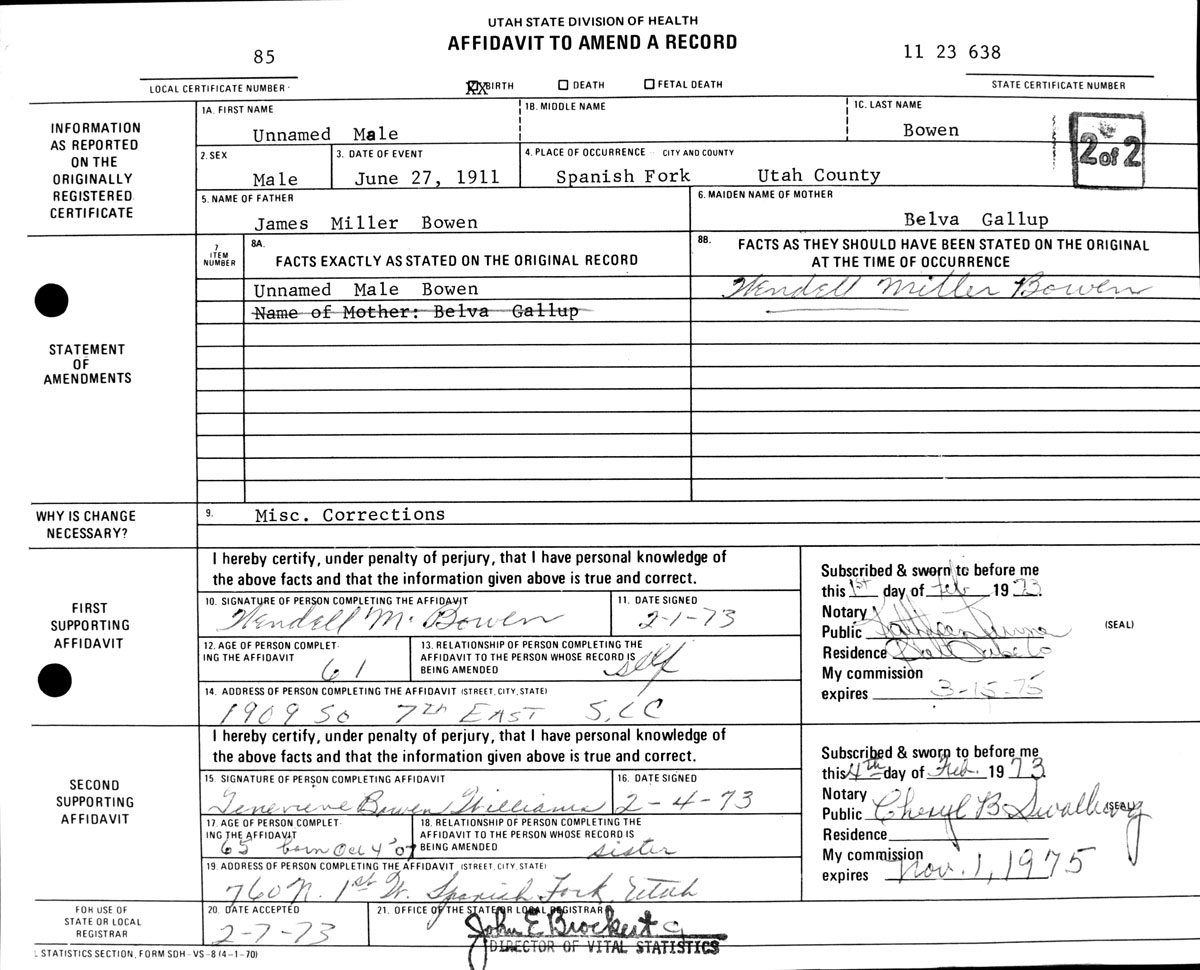 UTAH STATE DIVISION OF HEALTH
AFFIDAVIT TO AMEND A RECORD
85
11 23 638
LOCAL CERTIFICATE NUMBER
XX BIRTH ☐ DEATH ☐ FETAL DEATH
STATE CERTIFICATE NUMBER
INFORMATION
AS REPORTED
ON THE
ORIGINALLY
REGISTERED
CERTIFICATE
1A. FIRST NAME
Unnamed Male
1B. MIDDLE NAME
1C. LAST NAME
Bowen
2 of 2
2. SEX
Male
3. DATE OF EVENT
June 27, 1911
4. PLACE OF OCCURRENCE - CITY AND COUNTY
Spanish Fork Utah County
5. NAME OF FATHER
James Miller Bowen
6. MAIDEN NAME OF MOTHER
Belva Gallup
STATEMENT
OF
AMENDMENTS
7
ITEM
NUMBER
8A.
FACTS EXACTLY AS STATED ON THE ORIGINAL RECORD
8B. FACTS AS THEY SHOULD HAVE BEEN STATED ON THE ORIGINAL
AT THE TIME OF OCCURRENCE
Unnamed Male Bowen
Wendell Miller Bowen
Name of Mother: Belva Gallup
WHY IS CHANGE
NECESSARY?
9. Misc. Corrections
FIRST
SUPPORTING
AFFIDAVIT
I hereby certify, under penalty of perjury, that I have personal knowledge of
the above facts and that the information given above is true and correct.
10. SIGNATURE OF PERSON COMPLETING THE AFFIDAVIT
Wendell M. Bowen
11. DATE SIGNED
2-1-73
12. AGE OF PERSON COMPLET-
ING THE AFFIDAVIT
61
13. RELATIONSHIP OF PERSON COMPLETING THE
AFFIDAVIT TO THE PERSON WHOSE RECORD IS
BEING AMENDED
self
14. ADDRESS OF PERSON COMPLETING THE AFFIDAVIT (STREET, CITY, STATE)
1909 So 7th EAST SLC
Subscribed & sworn to before me
this 1st day of Feb 1973
Notary
Public
(SEAL)
Residence
My commission
expires 3-15-75
SECOND
SUPPORTING
AFFIDAVIT
I hereby certify, under penalty of perjury, that I have personal knowledge of
the above facts and that the information given above is true and correct.
15. SIGNATURE OF PERSON COMPLETING AFFIDAVIT
Genevieve Bowen Williams
16. DATE SIGNED
2-4-73
17. AGE OF PERSON COMPLET-
ING THE AFFIDAVIT
65 born Oct 4 '07
18. RELATIONSHIP OF PERSON COMPLETING THE
AFFIDAVIT TO THE PERSON WHOSE RECORD IS
BEING AMENDED
sister
19. ADDRESS OF PERSON COMPLETING THE AFFIDAVIT (STREET, CITY, STATE)
760 N. 1st W. Spanish Fork, Utah
Subscribed & sworn to before me
this 4th day of Feb. 1973
Notary
Public Cheryl B Swallberg
(SEAL)
Residence
My commission
expires Nov. 1, 1975
FOR USE OF
STATE OR LOCAL
REGISTRAR
20. DATE ACCEPTED
2-7-73
21. OFFICE OF THE STATE OR LOCAL REGISTRAR
John E Brockert
DIRECTOR OF VITAL STATISTICS
L STATISTICS SECTION, FORM SDH-VS-8 (4-1-70)